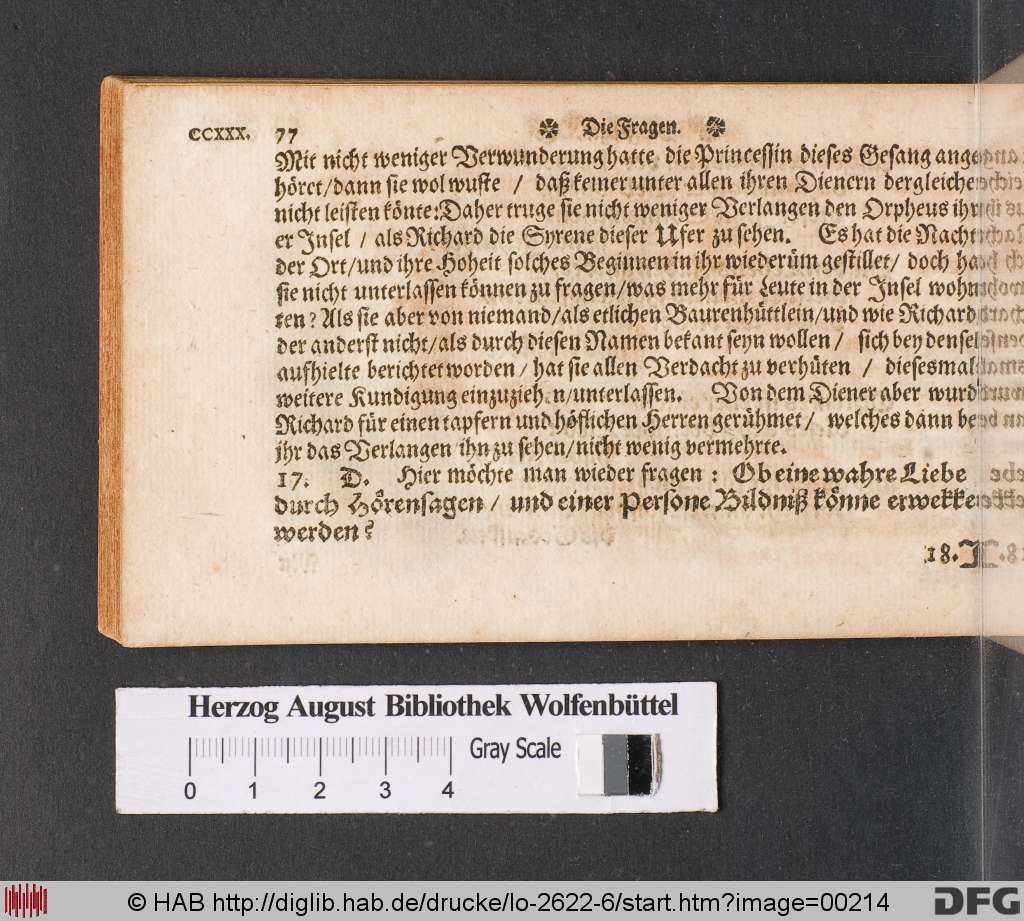 CCXXX. 77 Die Fragen.
Mit nicht weniger Verwunderung hatte die Princessin dieses Gesang ange
höret/dann sie wol wuste / daß keiner unter allen ihren Dienern dergleichen
nicht leisten könte: Daher truge sie nicht weniger Verlangen den Orpheus ihr
er Insel / als Richard die Syrene dieser Ufer zu sehen. Es hat die Nacht
der Ort/und ihre Hoheit solches Beginnen in ihr wiederüm gestillet/ doch hat
sie nicht unterlassen können zu fragen/was mehr für Leute in der Insel wohn
ten? Als sie aber von niemand/als etlichen Baurenhüttlein/und wie Richard
der anderst nicht/als durch diesen Namen bekant seyn wollen / sich bey densel
aufhielte berichtet worden/ hat sie allen Verdacht zu verhüten / diesesmal
weitere Kundigung einzuziehen/unterlassen. Von dem Diener aber wurd
Richard für einen tapfern und höflichen Herren gerühmet/ welches dann bey
jhr das Verlangen ihn zu sehen/nicht wenig vermehrte.
17. D. Hier möchte man wieder fragen: Ob eine wahre Liebe
durch Hörensagen / und einer Persone Bildniß könne erwekket
werden?
18.
Herzog August Bibliothek Wolfenbüttel
Gray Scale
0 1 2 3 4
© HAB http://diglib.hab.de/drucke/lo-2622-6/start.htm?image=00214
DFG